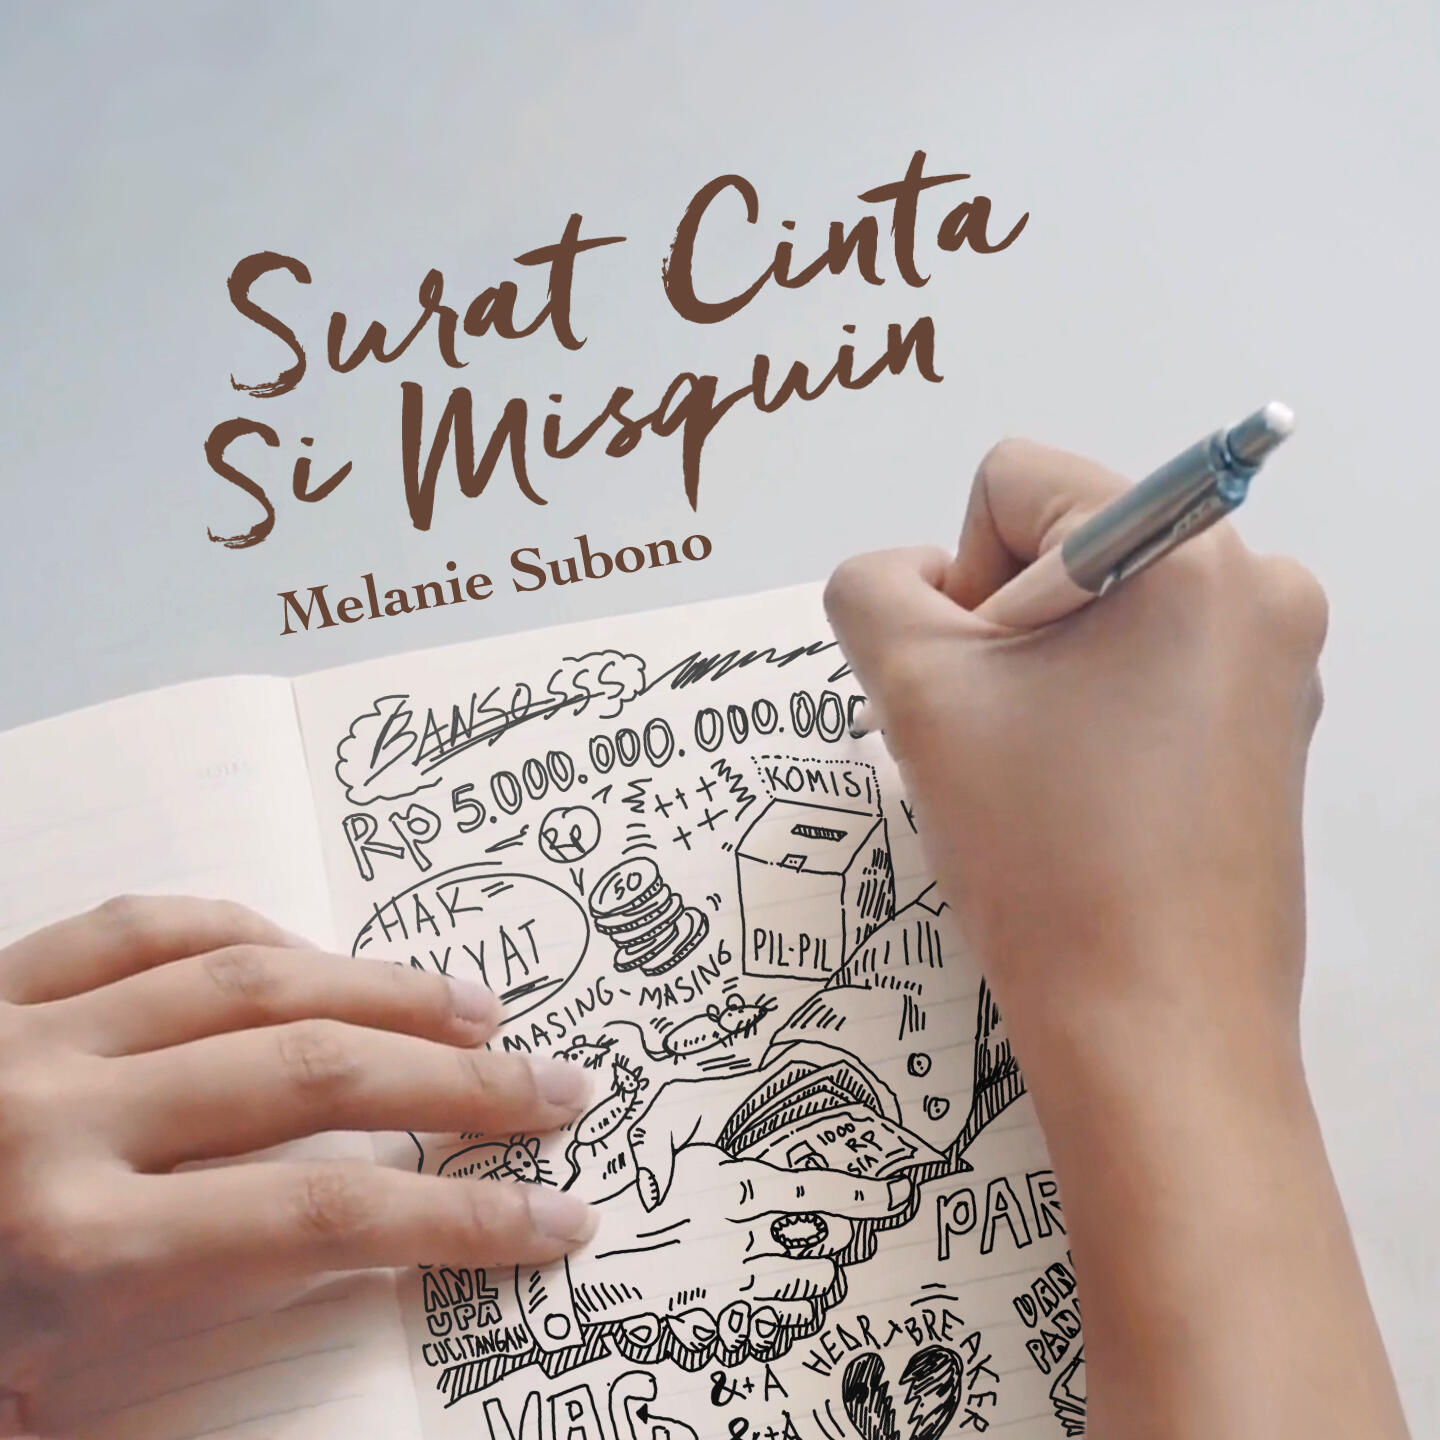 Surat Cinta
Si Misquin
Melanie Subono
BANSOSSS
Rp 5.000.000.000.000
Rp
KOMISI
50
HAK
RAKYAT
PIL-PIL
MASING-MASING
1000
RP
PAR
ANL
UPA
CUCITANGAN
HEART BREAKER
&+A
&+A